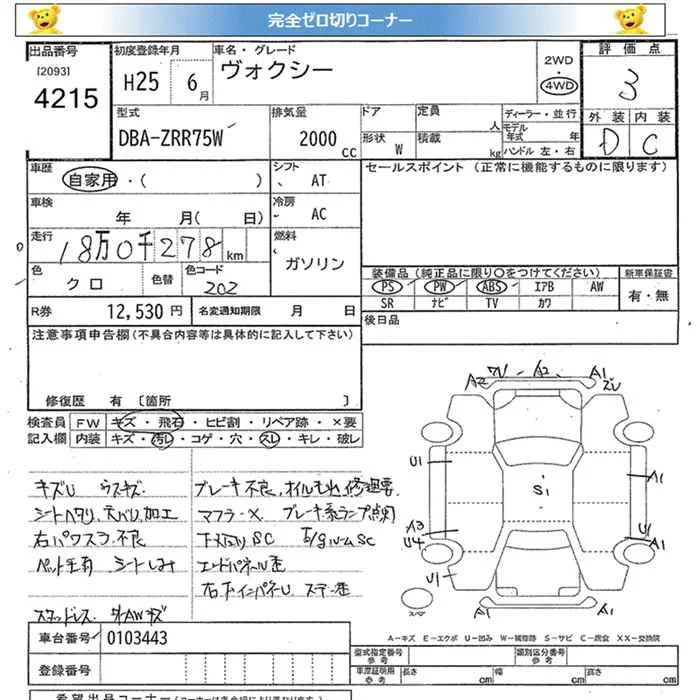 完全ゼロ切りコーナー
出品番号 初度登録年月 車名・グレード 評価点
[2093] H25 6月 ヴォクシー 2WD 4WD 3
4215
型式 排気量 ドア 定員 人 ディーラー・並行 外装 内装
DBA-ZRR75W 2000 cc 形状 W 積載 kg モデル年式 年 ハンドル 左・右 D C
車歴 シフト セールスポイント (正常に機能するものに限ります)
自家用・( ) AT
車検 年 月( 日) 冷房 AC
走行 18万0千278km 燃料 ガソリン
色 クロ 色替 色コード 202
装備品(純正品に限り○をつけてください) 新車保証書
PS PW ABS エアB AW 有・無
SR ナビ TV カワ
R券 12,530円 名変通知期限 月 日 後日品
注意事項申告欄(不具合内容等は具体的に記入して下さい)
修復歴 有 〔箇所 〕
検査員 FW キズ・飛石・ヒビ割・リペア跡・×要
記入欄 内装 キズ・汚レ・コゲ・穴・スレ・キレ・破レ
キズU ウスキズ
シートヘタリ、天バリ、加工
右パワスラ不良
ペット毛有 シートしみ
スタッドレス 外AWキズ
ブレーキ不良、オイルもれ修理要
マフラーX ブレーキ系ランプ点灯
下スレ SC
エンドパネル歪
A2 A2 A1
U1 A1
S1
A3 U1
U4 A1
U1
スペア
A1 A1
A-キズ E-エクボ U-凹み W-補修跡 S-サビ C-腐食 XX-交換済
車台番号 0103443
登録番号
型式指定番号 参考 類別区分番号 参考
車庫証明用 参考 長さ cm 幅 cm 高さ cm
希望出品コーナー